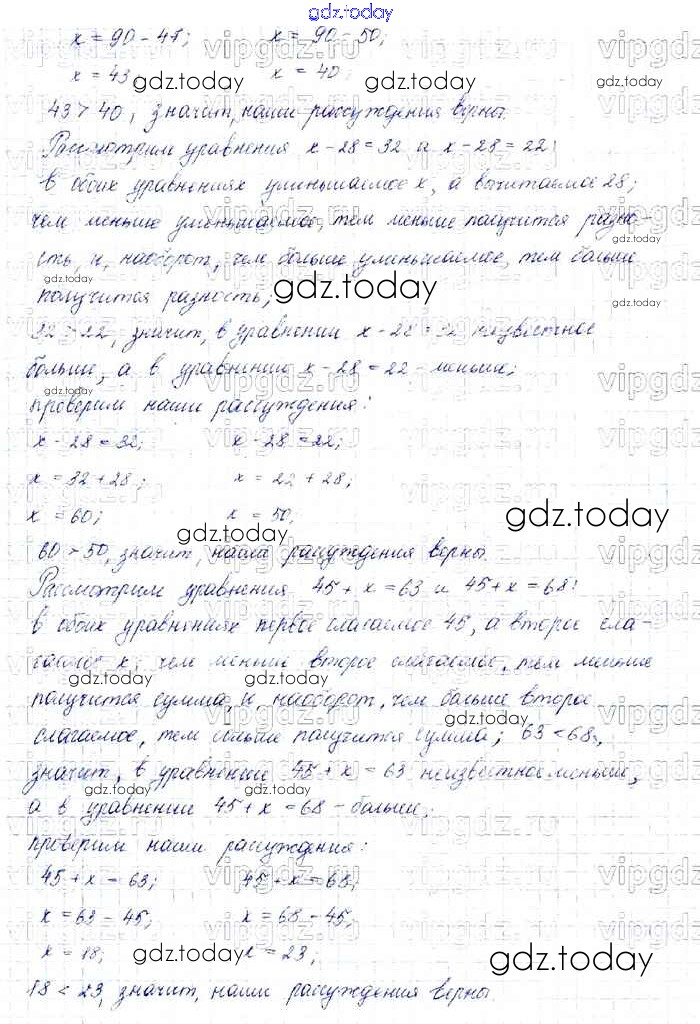 gdz.today
x = 90 - 47;   x = 90 - 50;
x = 43   x = 40;
43 > 40, значит, наши рассуждения верны.
Рассмотрим уравнения x - 28 = 32 и x - 28 = 22:
в обоих уравнениях уменьшаемое x, а вычитаемое 28;
чем меньше уменьшаемое, тем меньше получится разно-
сть, и, наоборот, чем больше уменьшаемое, тем больше
получится разность;
32 > 22, значит, в уравнении x - 28 = 32 неизвестное
больше, а в уравнении x - 28 = 22 - меньше;
проверим наши рассуждения:
x - 28 = 32;   x - 28 = 22;
x = 32 + 28;   x = 22 + 28;
x = 60;   x = 50;
60 > 50, значит, наши рассуждения верны.
Рассмотрим уравнения 45 + x = 63 и 45 + x = 68:
в обоих уравнениях первое слагаемое 45, а второе сла-
гаемое x; чем меньше второе слагаемое, тем меньше
получится сумма, и, наоборот, чем больше второе
слагаемое, тем больше получится сумма; 63 < 68,
значит, в уравнении 45 + x = 63 неизвестное меньше,
а в уравнении 45 + x = 68 - больше;
проверим наши рассуждения:
45 + x = 63;   45 + x = 68;
x = 63 - 45;   x = 68 - 45;
x = 18;   x = 23;
18 < 23, значит, наши рассуждения верны.